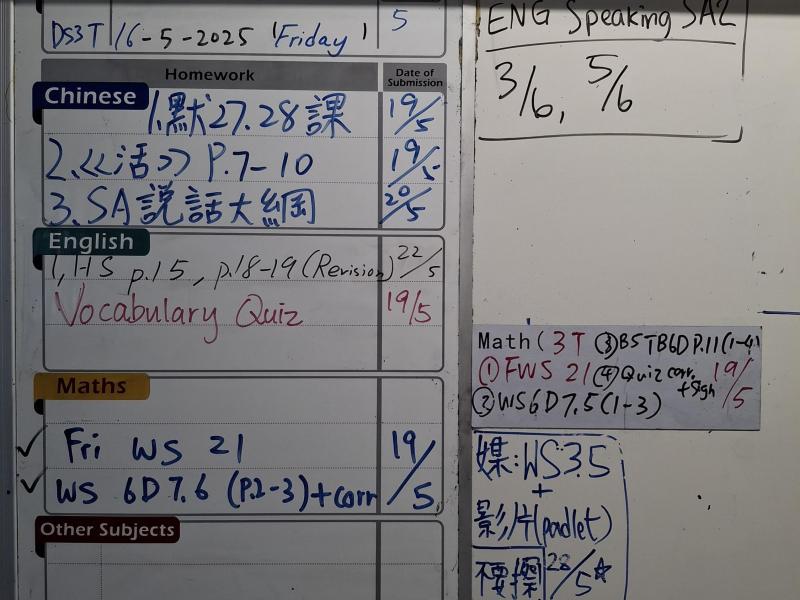 DS3T 16-5-2025 (Friday) 5
Homework Date of Submission
Chinese
1.默27.28課 19/5
2.《活》 P.7-10 19/5
3.SA説話大綱 20/5
English
1, HS p.15, p.18-19 (Revision) 22/5
Vocabulary Quiz 19/5
Maths
✓ Fri WS 21 19/5
✓ WS 6D7.6 (P.2-3)+corr
Other Subjects
ENG Speaking SA2
3/6, 5/6
Math (3T ③BS TB6D P.11(1-4)
①FWS 21 ④Quiz corr. + sign 19/5
②WS6D7.5(1-3)
媒:WS3.5
+
影片(padlet)
不要擦 28/5☆